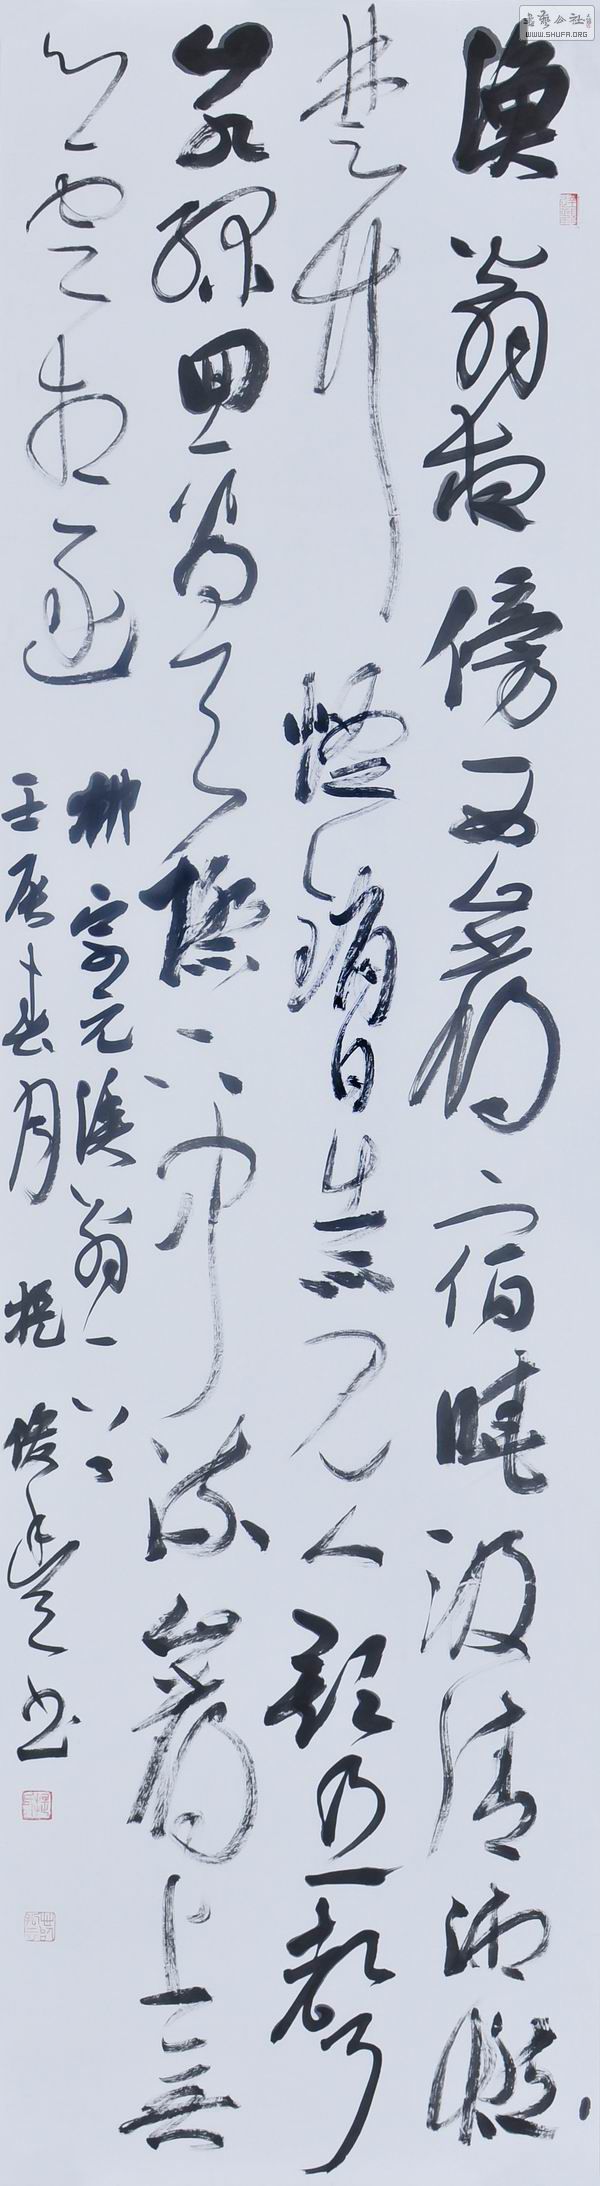 書藝公社
WWW.SHUFA.ORG
漁翁夜傍西巖宿晓汲清湘燃
楚竹煙销日出不見人欸乃一聲
山水綠回看天際下中流巖上無
心雲相逐
柳宗元漁翁一首
壬辰春月 书